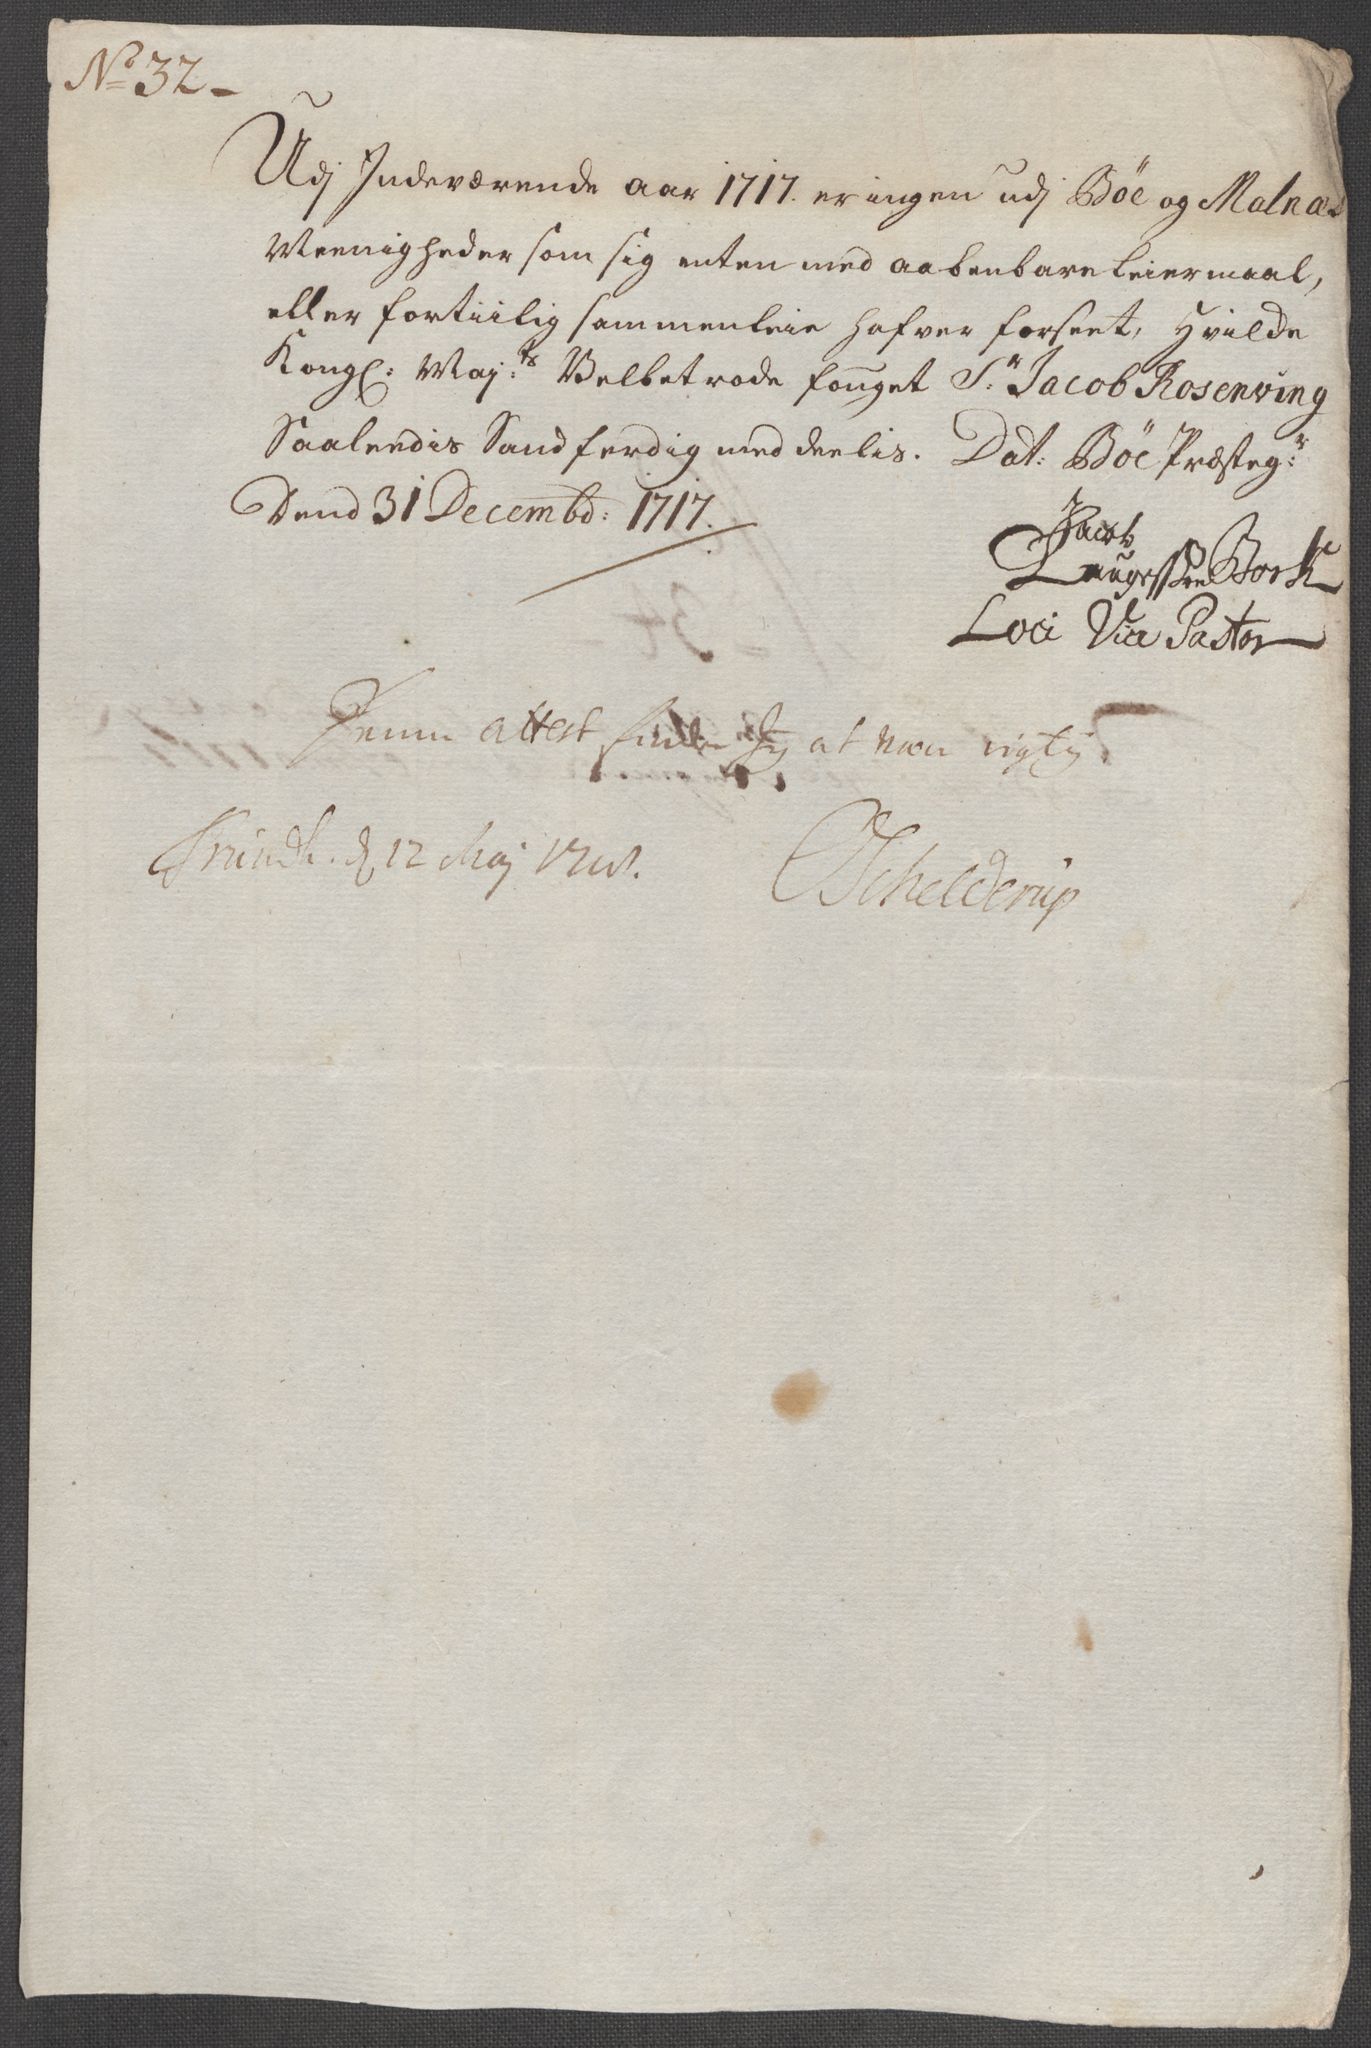 No 32
Udj Indeværende aar 1717. er ingen udj Böe og Malnæs
Meenigheder som sig enten med aabenbare Leiermaal,
eller fortiilig sammenleie hafver forseet, Hvilde
Kongl: Maj:ts Velbetrode fouget Sr: Jacob Rosenving
Saaleedis Sandferdig meddeelis. Dat: Böe Præsteg:r
Dend 31 Decembd: 1717.
Jacob
Laugessøn Bork
Loci Vice Pastor
Denne attest finder Jeg at være rigtig
Trundh. d 12 Maj 1718.
Schelderup